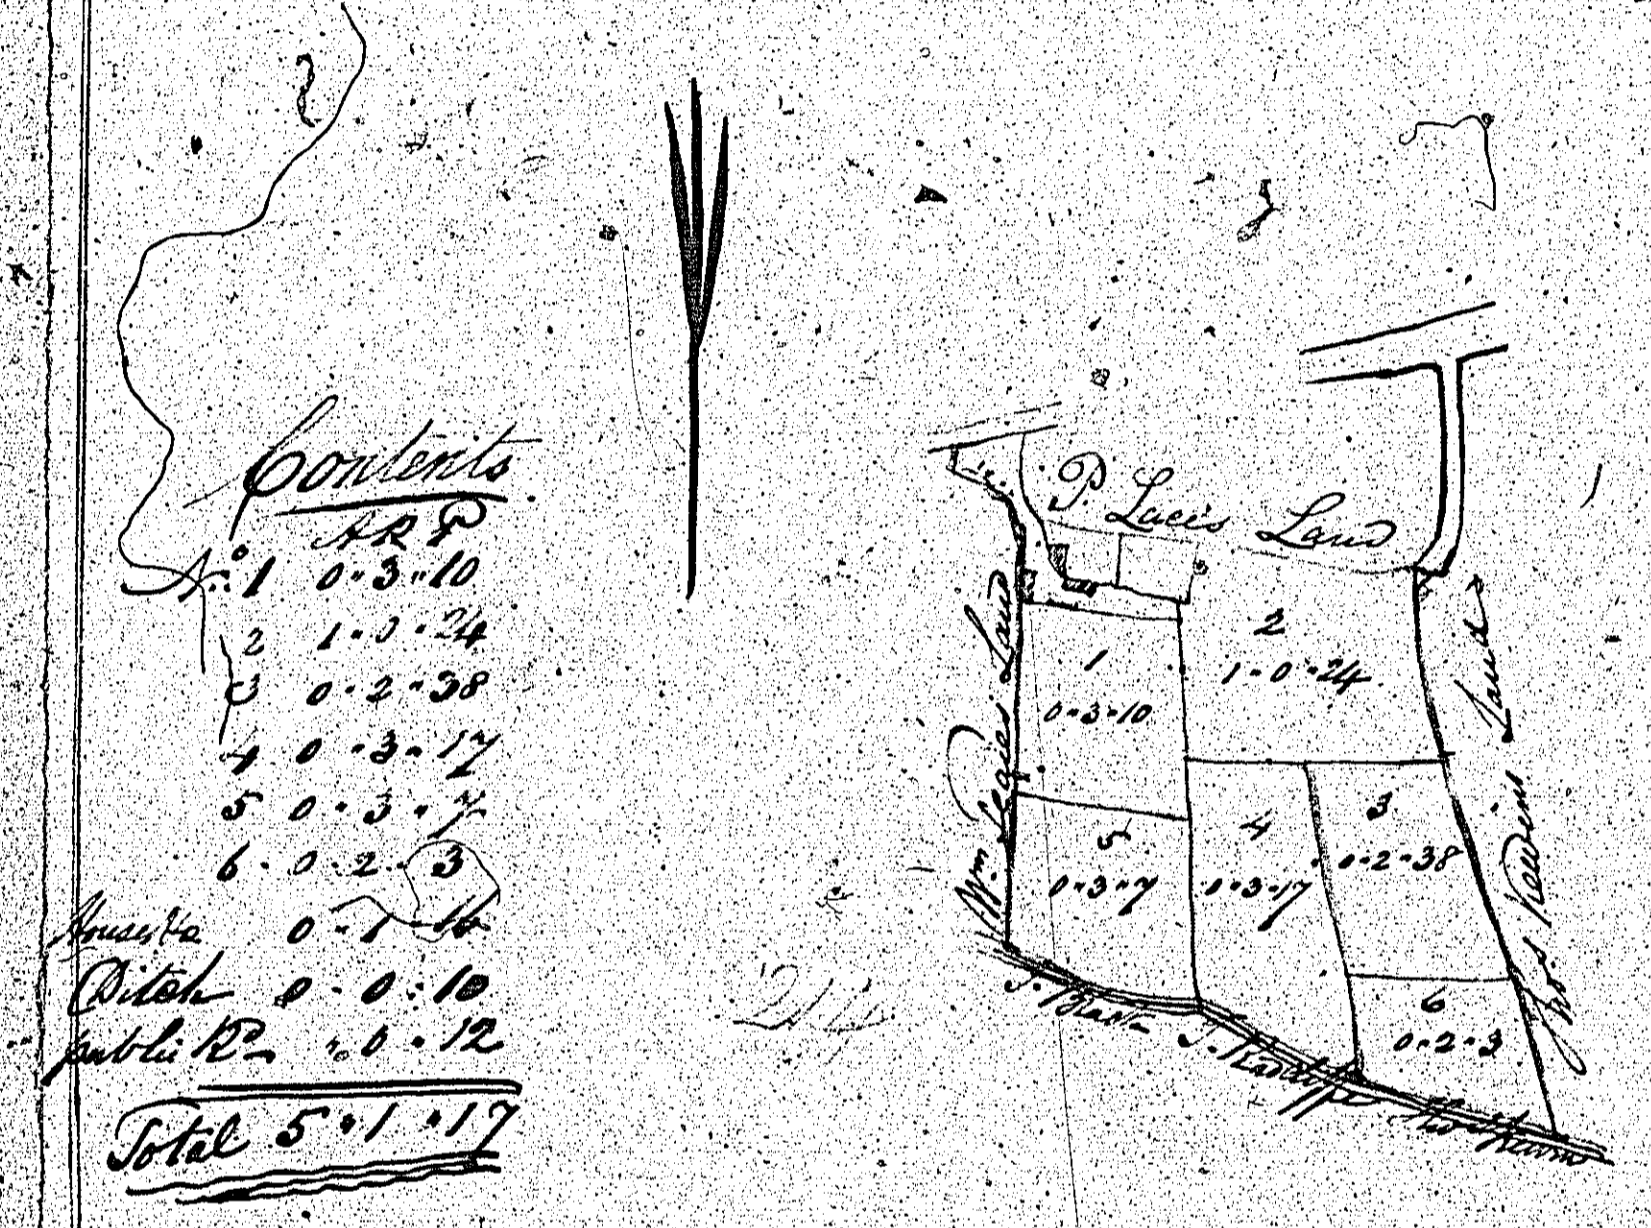 Contents
A R P
No. 1 0 " 3 " 10
2 1 - 0 - 24
3 0 - 2 " 38
4 0 - 3 - 17
5 0 - 3 - 7
6 - 0 - 2 - 3
Houses &c 0 - 1 - 16
Ditch 0 - 0 - 10
public Rd " 0 - 12
Total 5 " 1 " 17
P. Lace's Land
Wm. Lace's Land
Land
1
0-3-10
2
1-0-24
3
0-2-38
4
0-3-17
5
0-3-7
6
0-2-3
T. Radcliffe